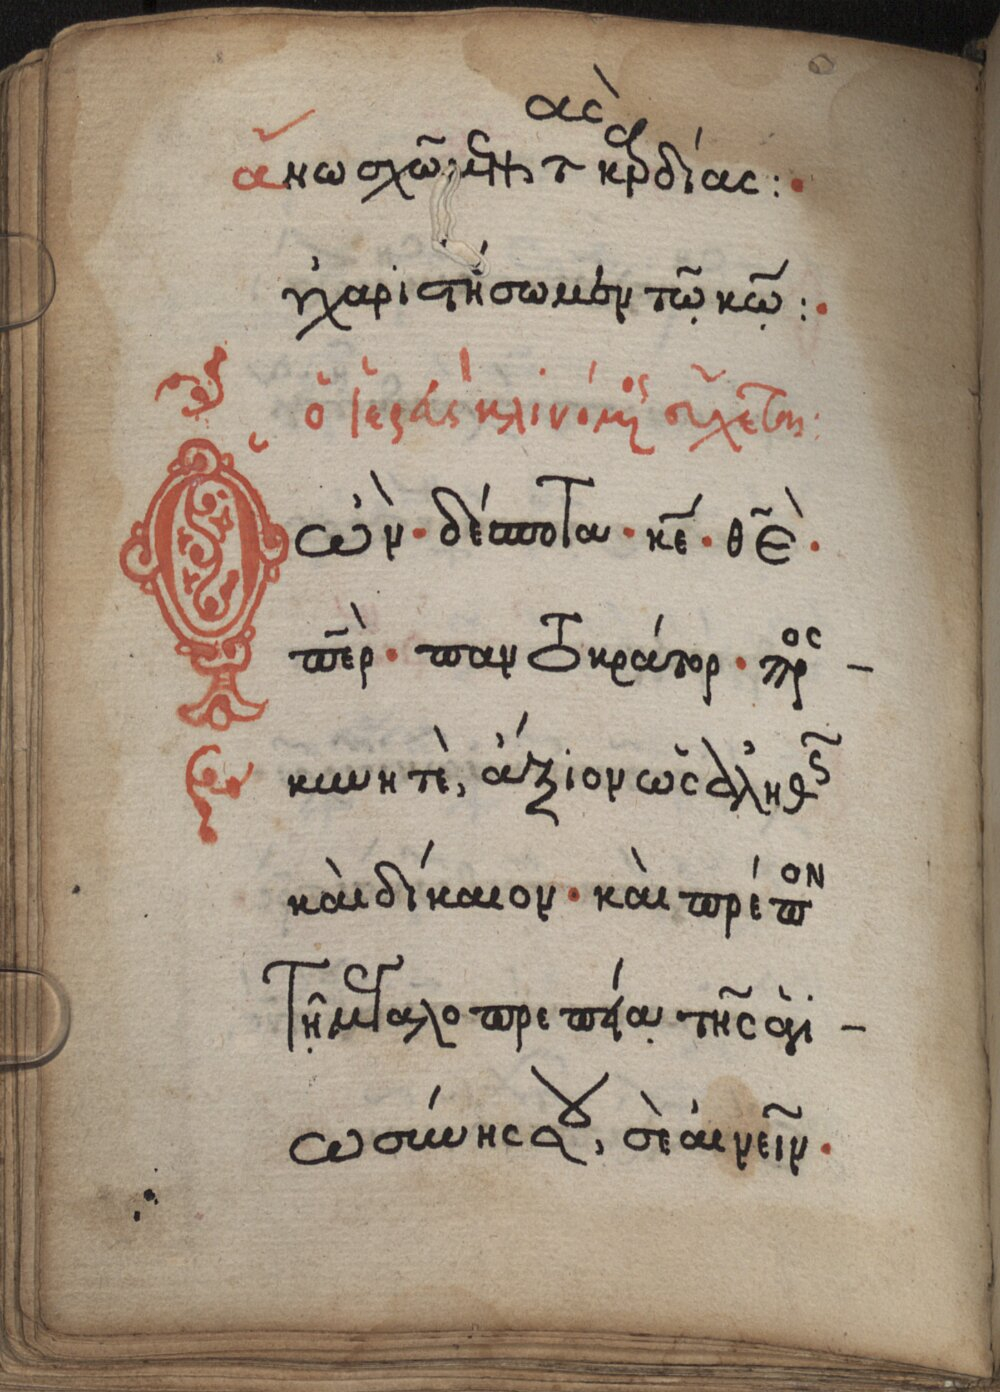 ἄνω σχῶμεν τὰς καρδίας :·
εὐχαριστήσωμεν τῷ κῶ :·
ὁ ἱερεὺς κλινόμενος εὔχεται :
Ὁ ὢν · δέσποτα · κε̄ · θε̄ ·
πε̄ρ · παντοκράτορ · προσ –
κυνητὲ, ἄξιον ὡς ἀληθῶς
καὶ δίκαιον · καὶ πρέπον
τῇ μεγαλοπρεπείᾳ τῆς ἁγι –
ωσύνης σου, σὲ αἰνεῖν ·